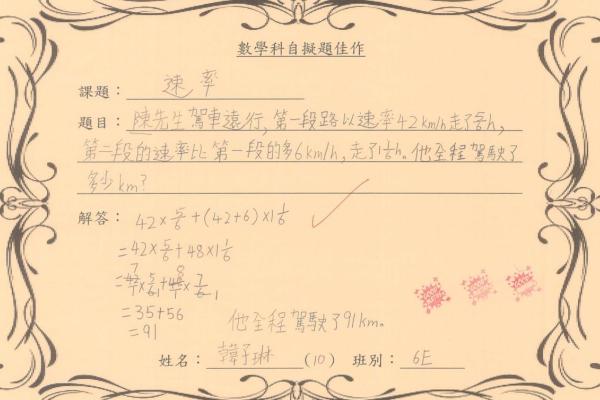 數學科自擬題佳作
課題：速率
題目：陳先生駕車遠行，第一段路以速率42km/h走了5/6h，
第二段的速率比第一段的多6km/h，走了1 1/6h。他全程駕駛了
多少km？
解答：42×5/6+(42+6)×1 1/6
=42×5/6+48×1 1/6
=42/1×5/6+48/1×7/6
=35+56
=91
他全程駕駛了91km。
姓名：韓子琳(10) 班別：6E